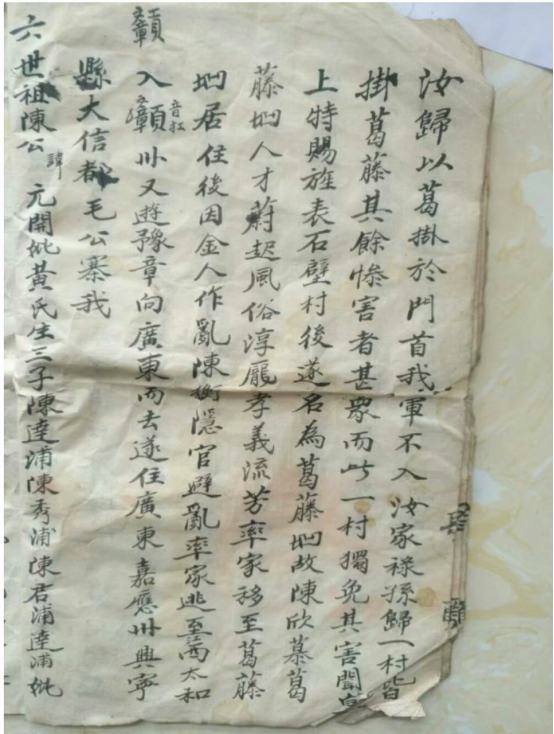 汝歸以葛掛於門首我軍不入汝家祿孫歸一村皆
掛葛藤其餘慘害者甚衆而此一村獨免其害聞
上特賜旌表石壁村後遂名為葛藤坳故陳欣慕葛
藤坳人才蔚起風俗淳厖孝義流芳率家移至葛藤
坳居住後因金人作亂陳衡隱官避亂率家逃至西太和
入贑音杠卅又遊豫章向廣東而去遂住廣東嘉應卅興寧
贑
縣大信都毛公寨我
六世祖陳公諱元開妣黃氏生三子陳達浦陳秀浦陳君浦達浦妣